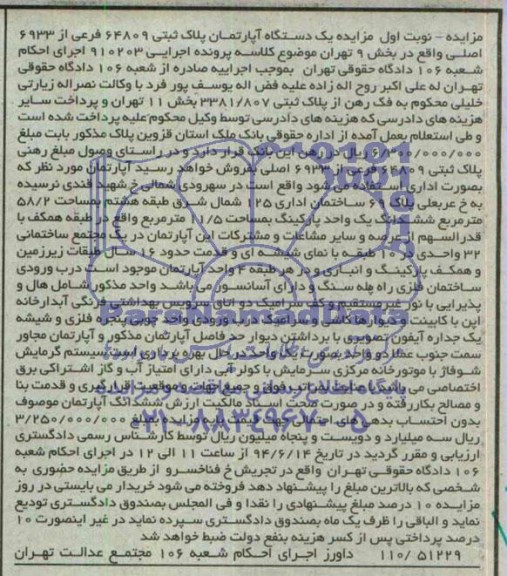 مزایده - نوبت اول مزایده یک دستگاه آپارتمان پلاک ثبتی ۶۴۸۰۹ فرعی از ۶۹۳۳
اصلی واقع در بخش ۹ تهران موضوع کلاسه پرونده اجرایی ۹۱۰۲۰۳ اجرای احکام
شعبه ۱۰۶ دادگاه حقوقی تهران بموجب اجراییه صادره از شعبه ۱۰۶ دادگاه حقوقی
تهران له علی اکبر روح اله زاده علیه فض اله یوسف پور فرد با وکالت نصراله زیارتی
خلیلی محکوم به فک رهن از پلاک ثبتی ۳۳۸۱/۸۰۷ بخش ۱۱ تهران و پرداخت سایر
هزینه های دادرسی که هزینه های دادرسی توسط وکیل محکوم علیه پرداخت شده است
و طی استعلام بعمل آمده از اداره حقوقی بانک ملک استان قزوین پلاک مذکور بابت مبلغ
ریال در رهن این بانک قرار دارد و در راستای وصول مبلغ رهنی
پلاک ثبتی ۶۴۸۰۹ فرعی از ۶۹۳۳ اصلی بفروش خواهد رسید آپارتمان مورد نظر که
بصورت اداری استفاده می شود واقع است در سهروردی شمالی خ شهید قندی نرسیده
به خ عربعلی پلاک ۶۹ ساختمان اداری ۲۵ شمال شرق طبقه هشتم بمساحت ۵۸/۲
مترمربع ششدانگ یک واحد پارکینگ بمساحت ۱/۵ مترمربع واقع در طبقه همکف با
قدرالسهم از عرصه و سایر مشاعات و مشترکات این آپارتمان در یک مجتمع ساختمانی
۳۲ واحدی در ۱۰ طبقه با نمای شیشه ای و قدمت حدود ۱۶ سال طبقات زیرزمین
و همکف پارکینگ و انباری و در هر طبقه ۴ واحد آپارتمان موجود است درب ورودی
ساختمان فلزی راه پله سنگ و دارای آسانسور می باشد واحد مذکور شامل هال و
پذیرایی با نور غیرمستقیم و کف سرامیک دو اتاق سرویس بهداشتی فرنگی آبدارخانه
اپن با کابینت و دیوارها کاشی و سرامیک درب ورودی واحد چوبی پنجره فلزی و شیشه
یک جداره آیفون تصویری با برداشتن دیوار حد فاصل آپارتمان مذکور و آپارتمان مجاور
سمت جنوب عملا دو واحد بصورت یک واحد در حال بهره برداری است سیستم گرمایش
شوفاژ با موتورخانه مرکزی سرمایش با کولر آبی دارای امتیاز آب و گاز اشتراکی برق
اختصاصی می باشد با عنایت بمراتب فوق و جمیع جهات و موقعیت قرارگیری و قدمت بنا
و مصالح بکاررفته و در صورت صحت اسناد مالکیت ارزش ششدانگ آپارتمان موصوف
بدون احتساب بدهی های احتمالی جهت قیمت پایه مزایده بمبلغ ۳/۲۵۰/۰۰۰/۰۰۰
ریال سه میلیارد و دویست و پنجاه میلیون ریال توسط کارشناس رسمی دادگستری
ارزیابی و مقرر گردید در تاریخ ۹۴/۶/۱۴ از ساعت ۱۱ الی ۱۲ در اجرای احکام شعبه
۱۰۶ دادگاه حقوقی تهران واقع در تجریش خ فناخسرو از طریق مزایده حضوری به
شخصی که بالاترین مبلغ را پیشنهاد دهد فروخته می شود خریدار می بایستی در روز
مزایده ۱۰ درصد مبلغ پیشنهادی را نقدا و فی المجلس بصندوق دادگستری تودیع
نماید و الباقی را ظرف یک ماه بصندوق دادگستری سپرده نماید در غیر اینصورت ۱۰
درصد پرداختی پس از کسر هزینه بنفع دولت ضبط خواهد شد
۱۱۰/ ۵۱۲۲۹ دادورز اجرای احکام شعبه ۱۰۶ مجتمع عدالت تهران